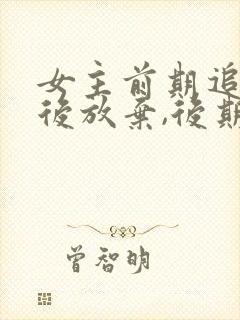 女主前期追
後放棄,後期
曾智明